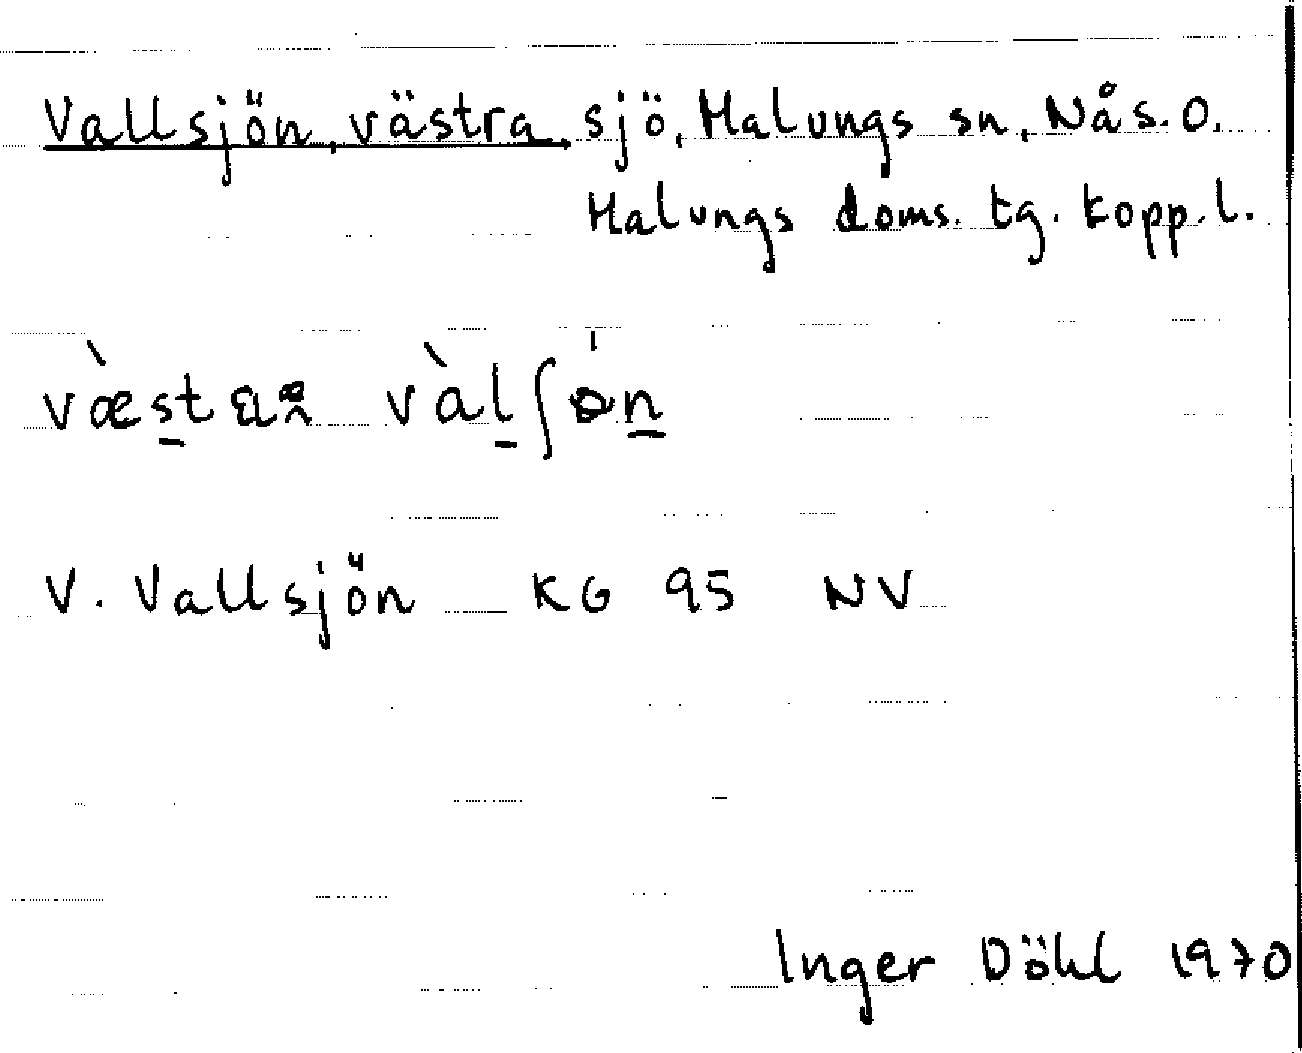 Vallsjön, västra, sjö, Malungs sn, Nås. O.
Malungs doms. tg. Kopp. l.
V. Vallsjön KG 95 NV
Inger Döhl 1970